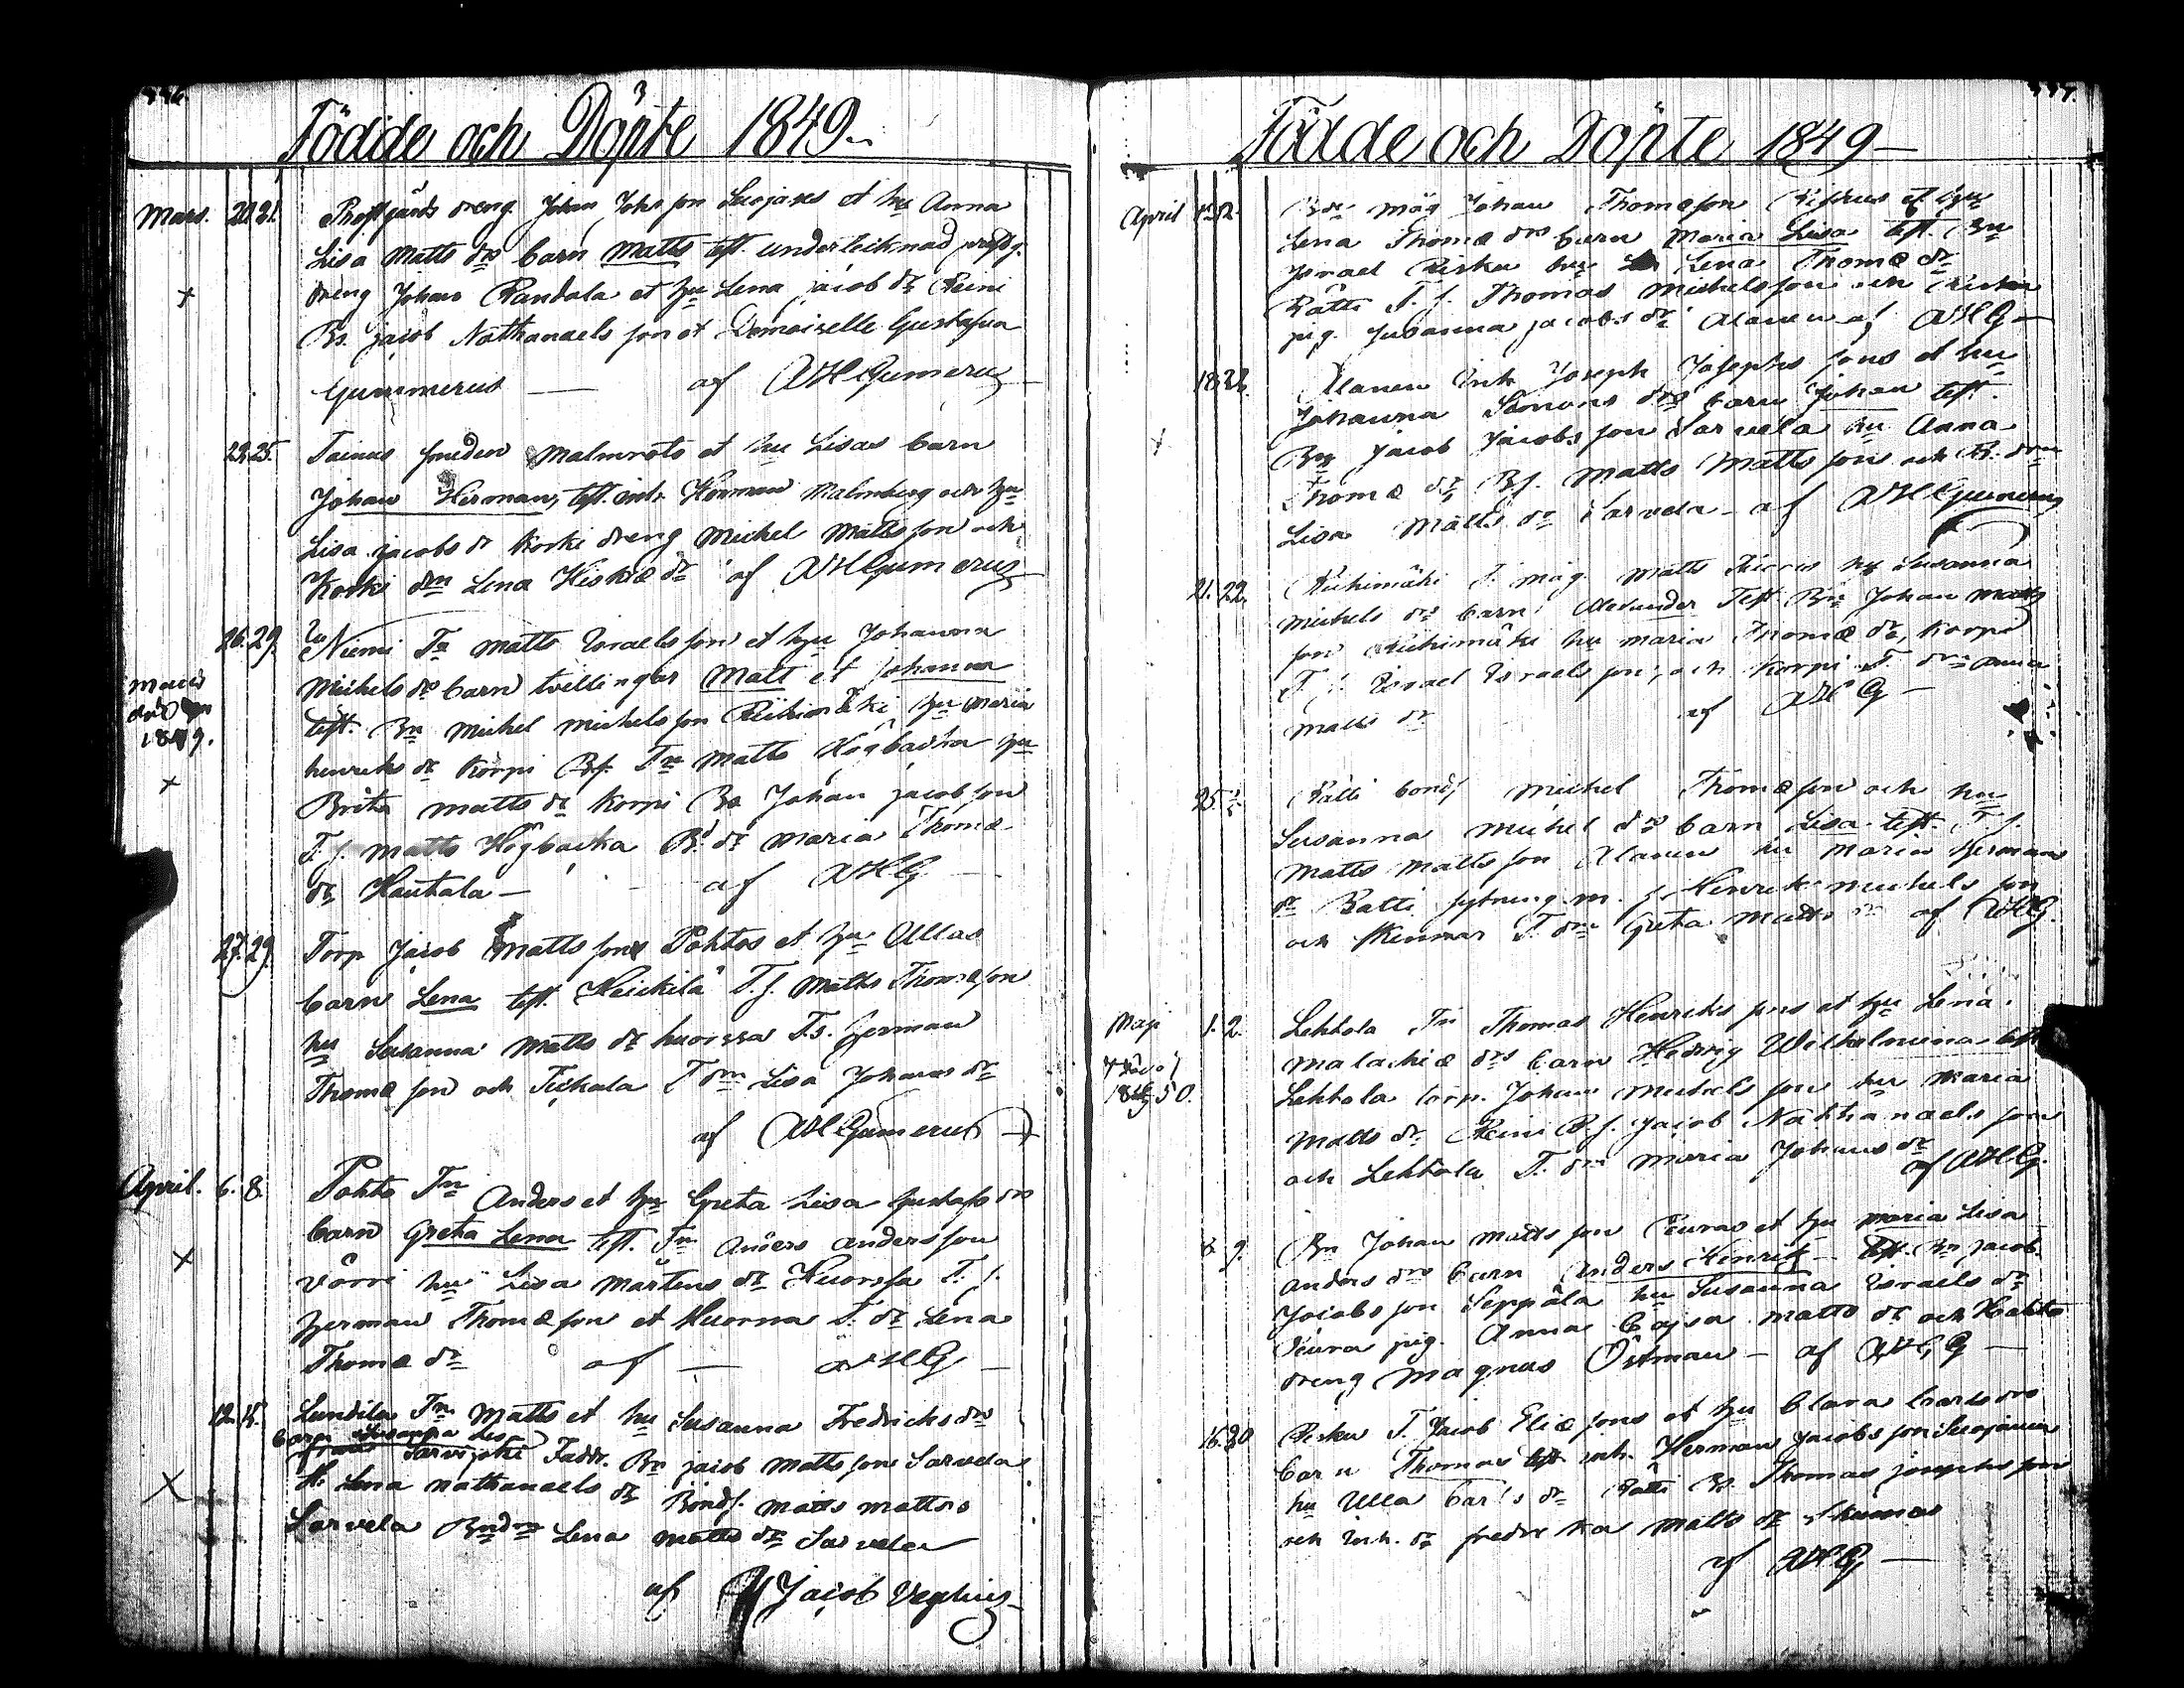 Födde och Döpte 1849
Mars. 20. 21. Prostgårds dreng Johan Johs son Suojanes et hu Anna
Lisa Matts drs barn Matts test. undertecknad prostg.
dreng Johan Randala et hu Lena Jacob dr Reini
Bs. Jacob Nathanaels son et Demoiselle Gustafva
Gummerus — af AHGumerus
23. 25. Tainus smeden Malmrots et hu Lisas barn
Johan Herman, test. inh. Herman Malmberg och hu
Lisa Jacobs dr Korki dreng Michel Matts son och
Korki drn Lena Hiskiæ dr af AHGumerus
26. 29. Niemi Tn Matts Israels son et hu Johanna
Michels drs barn tvillingar Matt et Johanna
test. Bn Michel Michels son Riihimäki hu Maria
henriks dr Korpi Tn Matts Högbacka hu
Brita Matts dr Korpi Bs Johan Jacob son
T. s. Matts Högbacka B. dr Maria Thomæ
dr Hautala — af AHG
1849.
27. 29. Torp Jacob Matts sons Pohtos et hu Ullas
barn Lena test. Heickilä T. s. Matts Thomæson
hu Susanna Matts dr huorssa Ts. Herman
Thomæ son och Tiihala T drn Lisa Johans dr
af AHGumerus
April. 6. 8. Pohto Tn Anders et hu Greta Lisa Gustafs drs
barn Greta Lena test. Tn Anders Anders son
Vörri hu Lisa Mårtens dr Huorssa T. s.
Herman Thomæ son et Huorna T. dr Lena
Thomæ dr af — AHG —
12. 15. Lundila Tn Matts et hu Susanna Fredricks drs
barn Susanna Lis
Sarvijoki Faddr. Bn Jacob Matts son Sarvela
H. Lena Nathanaels dr Bonds. Matts Mattss
Sarvela Bndrn Lena Matts dr Sarvela
af Jacob Veglius
Födde och Döpte 1849 —
April Bn måg Johan Thomæson Riskus et hu
Lena Thomæ drs barn Maria Lisa test. Bn
Israel Risku hu Lena Thomæ dr
Rätti T. s. Thomas Michelsson och Riska
pig. Susanna Jacobs dr Alanen af AHG —
18. 22. Alanen Inh Joseph Josephs sons et hu
Johanna Simons drs barn Johan test.
Bn Jacob Jacobs son Sarvela hu Anna
Thomæ dr Bs. Matts Matts son och B. drn
Lisa Matts dr Sarvela — af AHGumerus
21. 22. Riihimäki T. måg Matts hu Susanna
Michels drs barn Alexander Test Bn Johan Matts
son Riihimäki hu Maria Thomæ dr, Korpi
T. s. Israel Israels son, och Korpi T. drn Anna
Matts dr af AHG —
25. Rätti bonds Michel Thomæ son och hu
Susanna Michel drs barn Lisa test. T. s.
Matts Matts son Alanen hu Maria Hermans
dr Ratti sytning m. s. Henrik Michels son
och T drn Greta Matts dr af AHG
Maji 1. 2. Lehtola Tn Thomas Henriks sons et hu Lena
Malachiæ drs barn Hedvig Wilhelmina test
Lehtola torp. Johan Michels son hu Maria
Matts dr Reini B. s. Jacob Nathanaels son
och Lehtola T. drn Maria Johans dr
af AHG.
50.
8. 9. Bn Johan Matts son Peuras et hu Maria Lisa
Anders drs barn Anders Henrik — Test. Bn Jacob
Jacobs son Seppälä hu Susanna Israels dr
Peura pig. Anna Cajsa Matts dr och
dreng Magnus Östman — af AHG —
16. 20 Risku T. Jacob Eliæ sons et hu Clara Carls drs
barn Thomas test inh. Herman Jacobs son Suojanen
hu Ulla Carls dr Rätti Bs. Thomas Josephs son
och Inh. dr Fredrika Matts dr
af AHG —